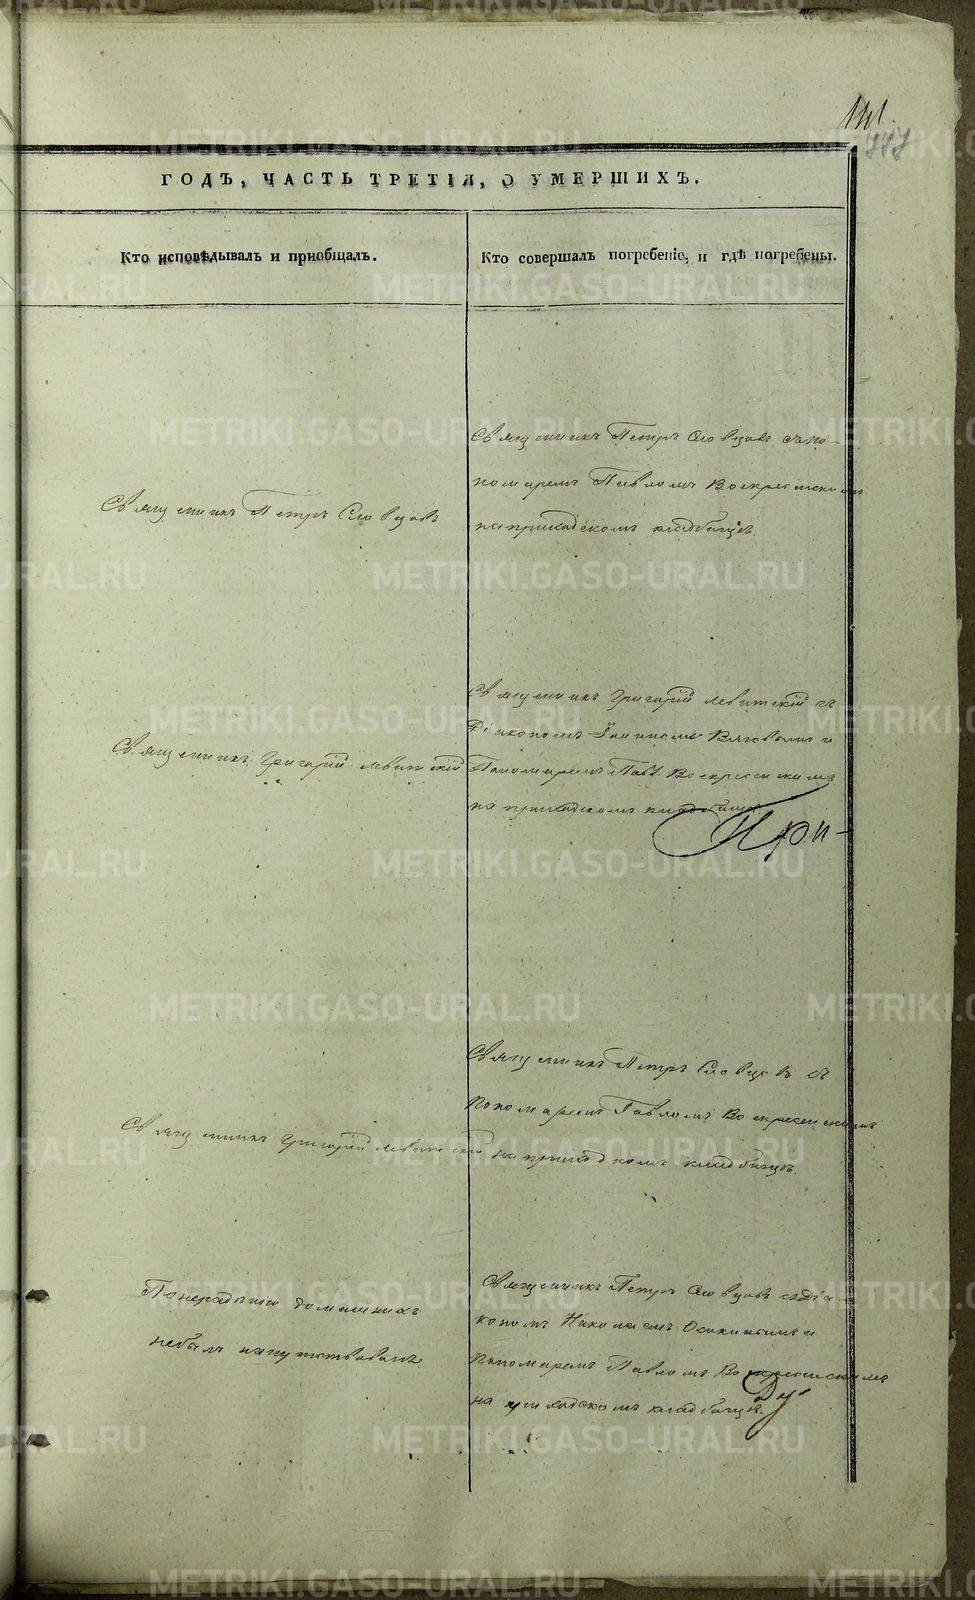 141.
ГОДЪ, ЧАСТЬ ТРЕТІЯ, О УМЕРШИХЪ.
Кто исповѣдывалъ и пріобщалъ.
Кто совершалъ погребеніе, и гдѣ погребены.
Священникъ Петръ Словцовъ
Священникъ Петръ Словцовъ съ по-
номаремъ Павломъ Воскресенскимъ
на приходскомъ кладбищѣ.
Священникъ Григорій Левитскій
Священникъ Григорій Левитскій съ
Діакономъ Іоанномъ и
Пономаремъ Пав. Воскресенскимъ
на приходскомъ кладбищѣ
При-
Священникъ Григорій Левитскій
Священникъ Петръ Словцовъ съ
Пономаремъ Павломъ Воскресенскимъ
на приходскомъ кладбищѣ.
По нерадѣнію домашнихъ
небылъ напутствованъ
Священникъ Петръ Словцовъ съ діа-
кономъ Николаемъ и
Пономаремъ Павломъ Воскресенскимъ
на приходскомъ кладбищѣ.
METRIKI.GASO-URAL.RU